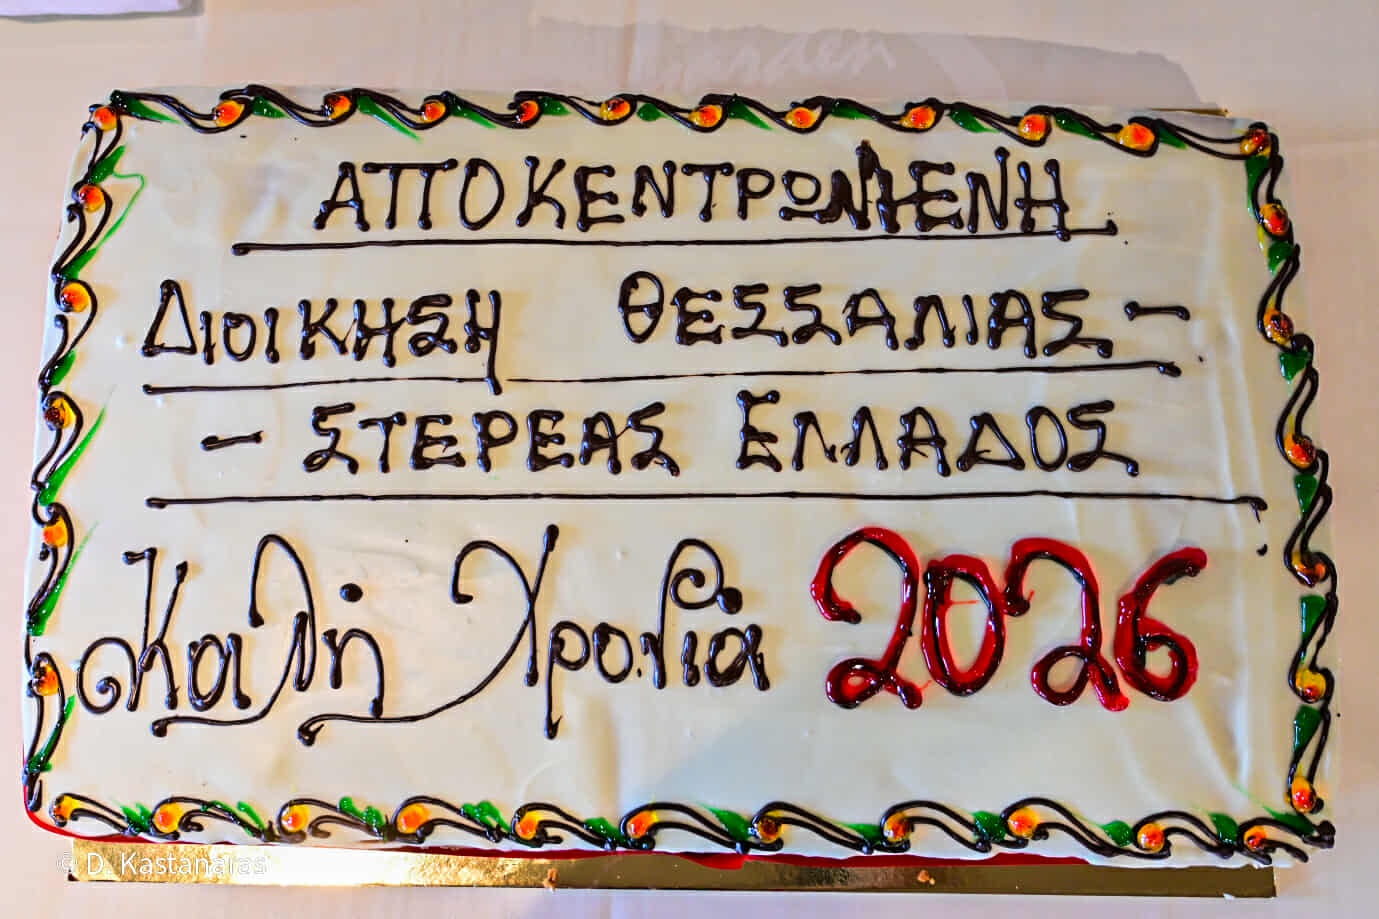 ΑΠΟΚΕΝΤΡΩΜΕΝΗ
ΔΙΟΙΚΗΣΗ ΘΕΣΣΑΛΙΑΣ -
- ΣΤΕΡΕΑΣ ΕΛΛΑΔΟΣ
Καλή Χρονιά 2026
© D. Kastanaras